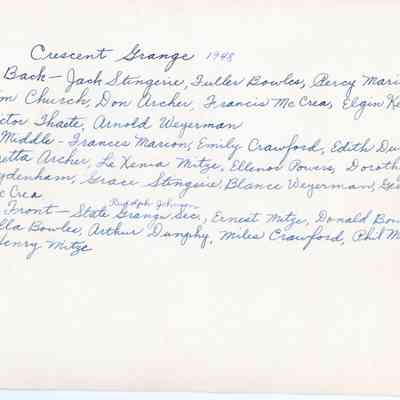 Crescent Grange 1948
Back - Jack Stingerie, Fuller Bowles, Percy Mari
m Church, Don Archer, Francis McCrea, Elgin Ke
ctor Thaete, Arnold Weyerman
Middle - Frances Marion, Emily Crawford, Edith Du
etta Archer, La Xenia Mitze, Ellenor Powers, Doroth
ydenham, Grace Stingerie, Blance Weyerman, G
c Crea
Rudolph Johnson
Front - State Grange Sec, Ernest Mitze, Donald Bow
lla Bowles, Arthur Dunphy, Miles Crawford, Phil M
Henry Mitze